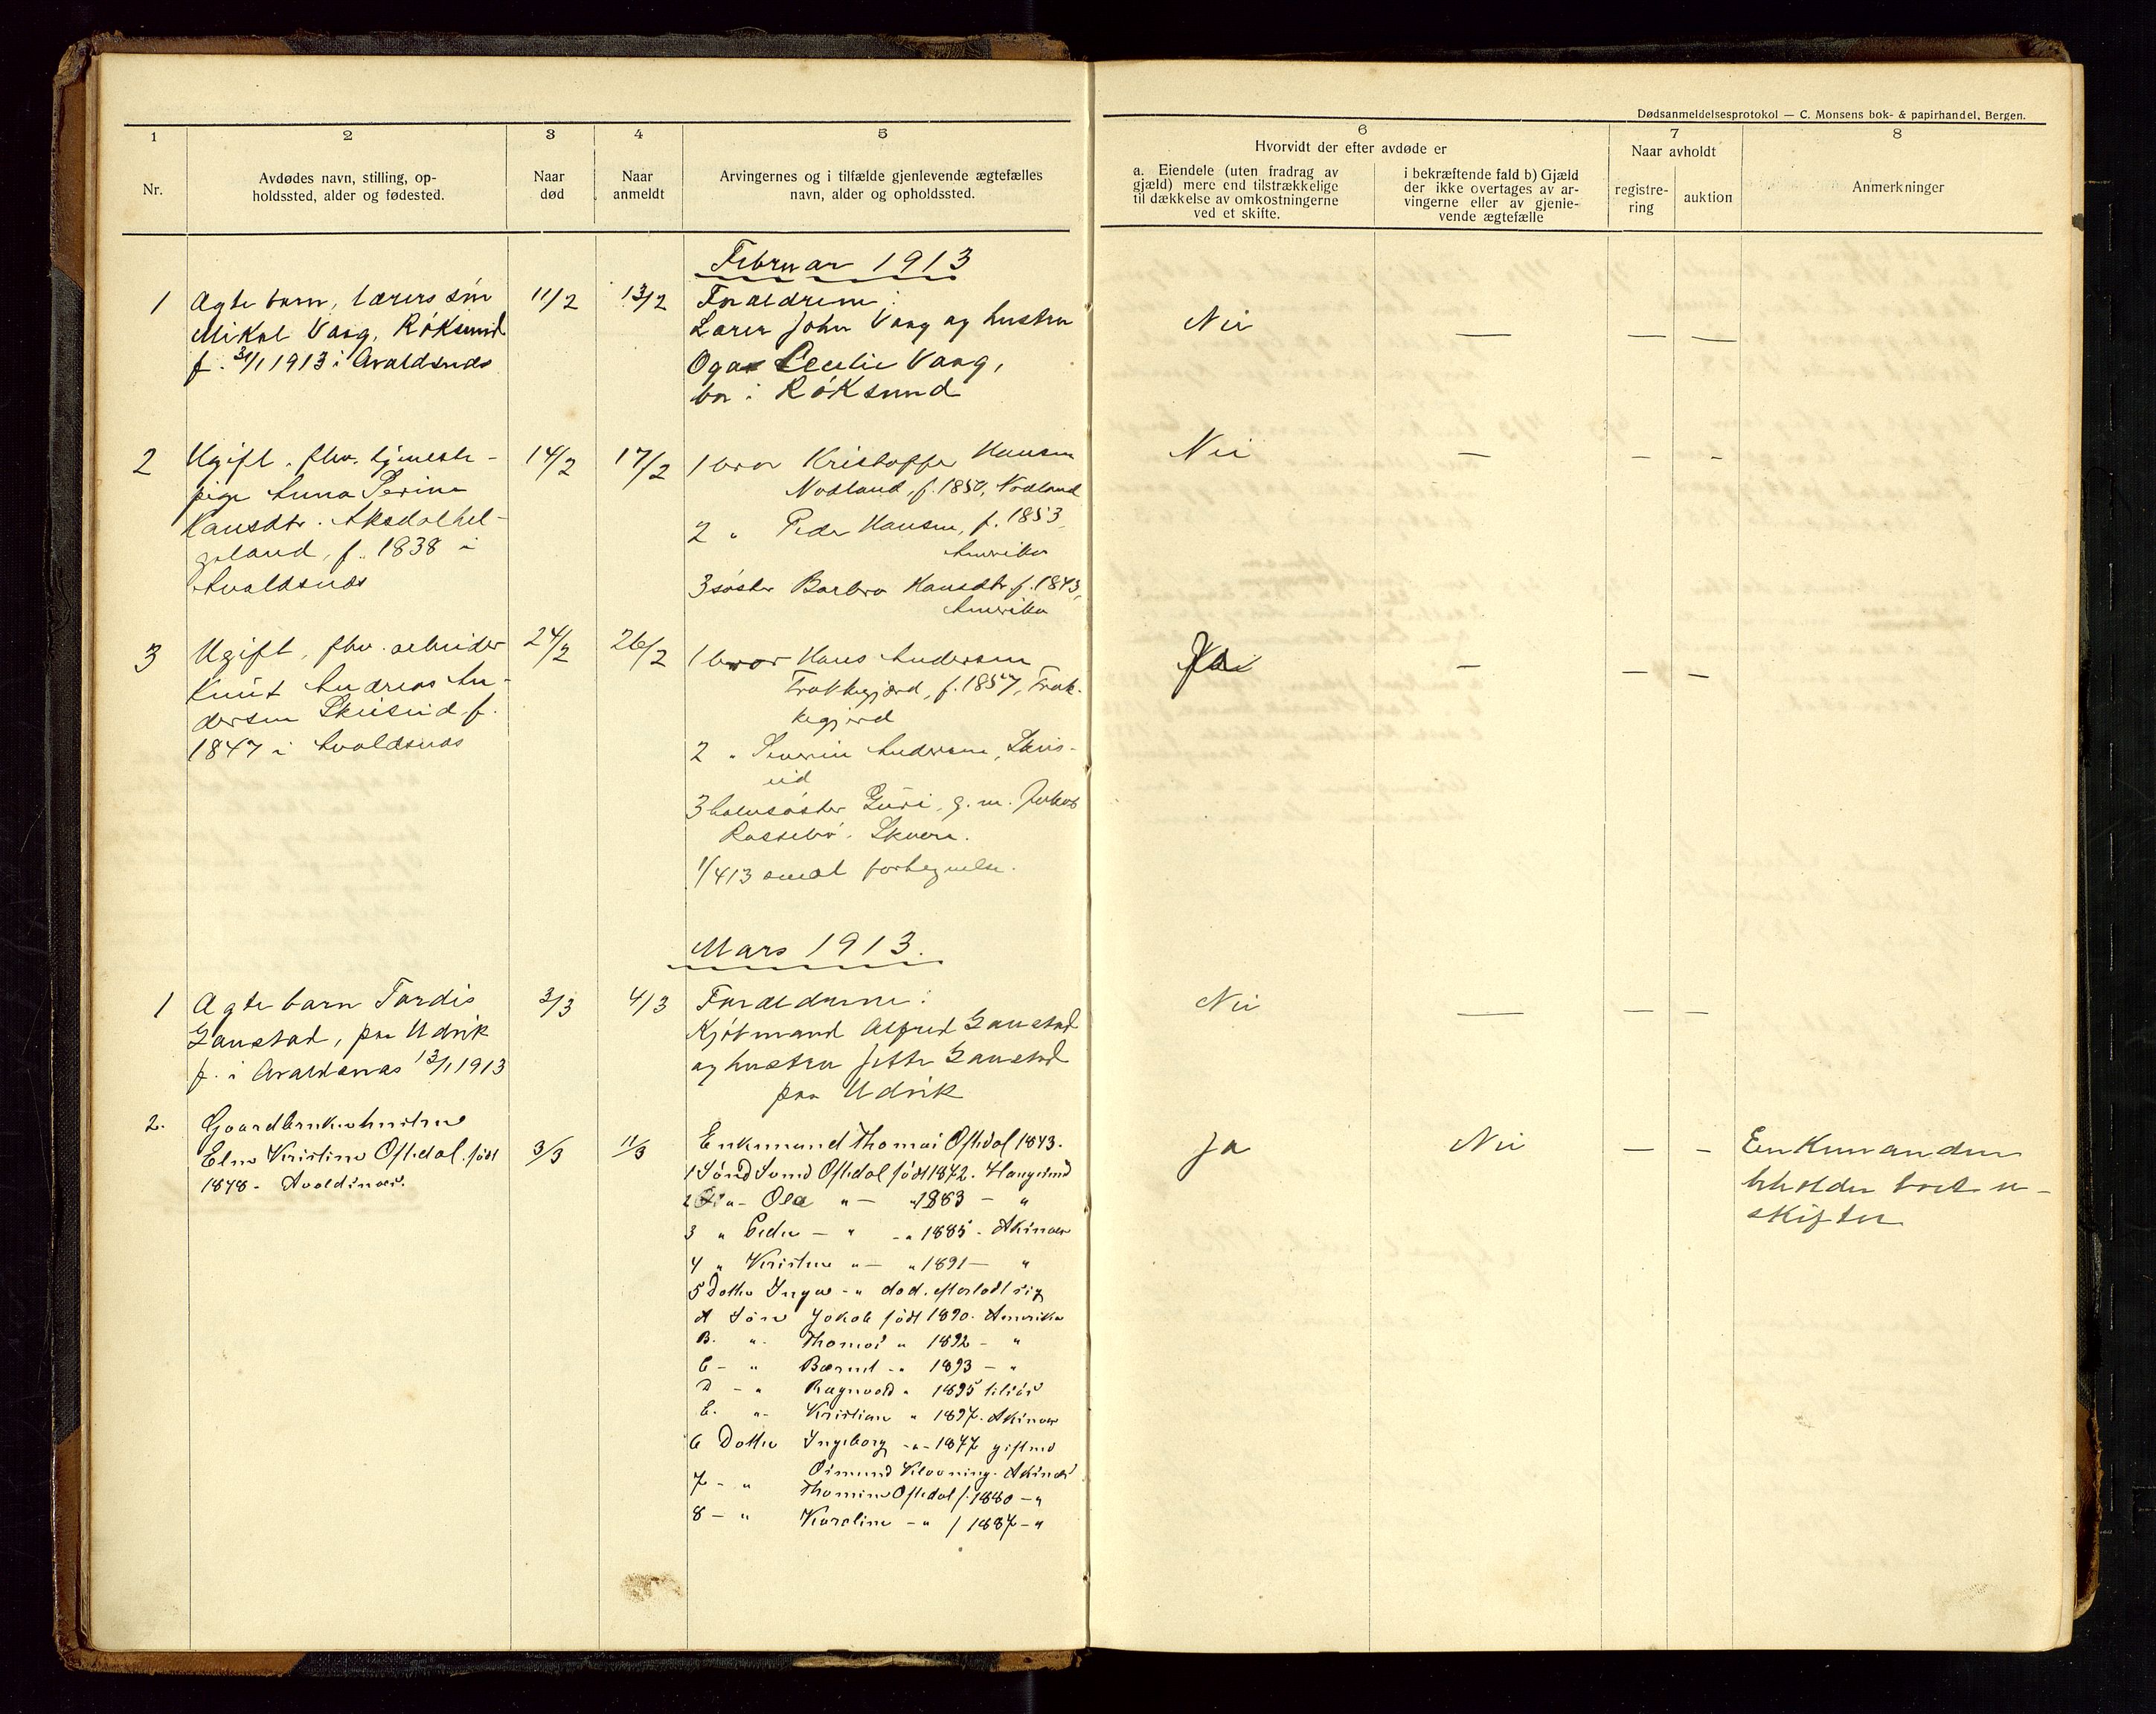 Dødsanmeldelsesprotokol — C. Monsens bok- & papirhandel, Bergen.
1
2
3
4
5
6
7
8
Nr.
Avdødes navn, stilling, op-
holdssted, alder og fødested.
Naar
død
Naar
anmeldt
Arvingernes og i tilfælde gjenlevende ægtefælles
navn, alder og opholdssted.
Hvorvidt der efter avdøde er
a. Eiendele (uten fradrag av
gjæld) mere end tilstrækkelige
til dækkelse av omkostningerne
ved et skifte.
i bekræftende fald b) Gjæld
der ikke overtages av ar-
vingerne eller av gjenle-
vende ægtefælle
Naar avholdt
registre-
ring
auktion
Anmerkninger
Februar 1913
1
Ægte barn, lærers søn
Mikal Vaag, Røksund
f. 31/1 1913 i Avaldsnæs
11/2
13/2
Forældrene:
Lærer John Vaag og hustru
Oga Cecilie Vaag,
bor i Røksund
Nei
—
—
—
2
Ugift, fhv. tjeneste-
pige Anna Serine
Hansdtr. Aksdalhel-
geland, f. 1838 i
Avaldsnæs
14/2
17/2
1 bror Kristoffer Hansen
Nodland, f. 1850, Nodland
2 " Peder Hansen, f. 1853,
Amerika
3 søster Barbro Hansdtr. f. 1843,
Amerika
Nei
—
—
-
3
Ugift, fhv. arbeider
Knut Andreas An-
dersen Skeiseid f.
1847 i Avaldsnæs
24/2
26/2
1 bror Hans Andersen
Frakkegjerd, f. 1857, Frak-
kegjerd
2 " Severin Andersen, Skeis-
eid
3 halvsøster Guri, g. m. Jakob
Rossebø. Skaare.
1/4 13
Ja
—
—
—
Mars 1913.
1
Ægte barn Tordis
Gaustad, paa Udvik
f. i Avaldsnæs 13/1 1913
3/3
4/3
Forældrene:
Kjøbmand Alfred Gaustad
og hustru Jette Gaustad
paa Udvik
Nei
—
—
—
2.
Gaardbrukerhustru
Elen Kristine Oftedal. født
1848 - Avaldsnæs.
3/3
11/3
Enkemand Thomas Oftedal 1843.
1 Sønd Svend Oftedal født 1872. Haugesund
2 Ole " — " 1883 — "
3 " Peder — " - " 1885 - Aksnæs
4 " " — " 1891 — "
5 Datter - " død. efterlatt sig
A Søn Jakob født 1890. Amerika
B. " Thomas " 1892 - "
C - " Bærnt - " 1893 - "
D - " Ragnvald " 1895 tilsjøs
E. " Kristian " 1897. Aksnæs
6 Datter Ingeborg - " - 1877 gift med
Osmund Kloovning. Aksnæs
7 - " Thomine Oftedal f. 1880 - "
8 — " Karoline - " f 1887 - "
Ja
Nei
—
-
Enkemanden
beholder boet u-
skiftet